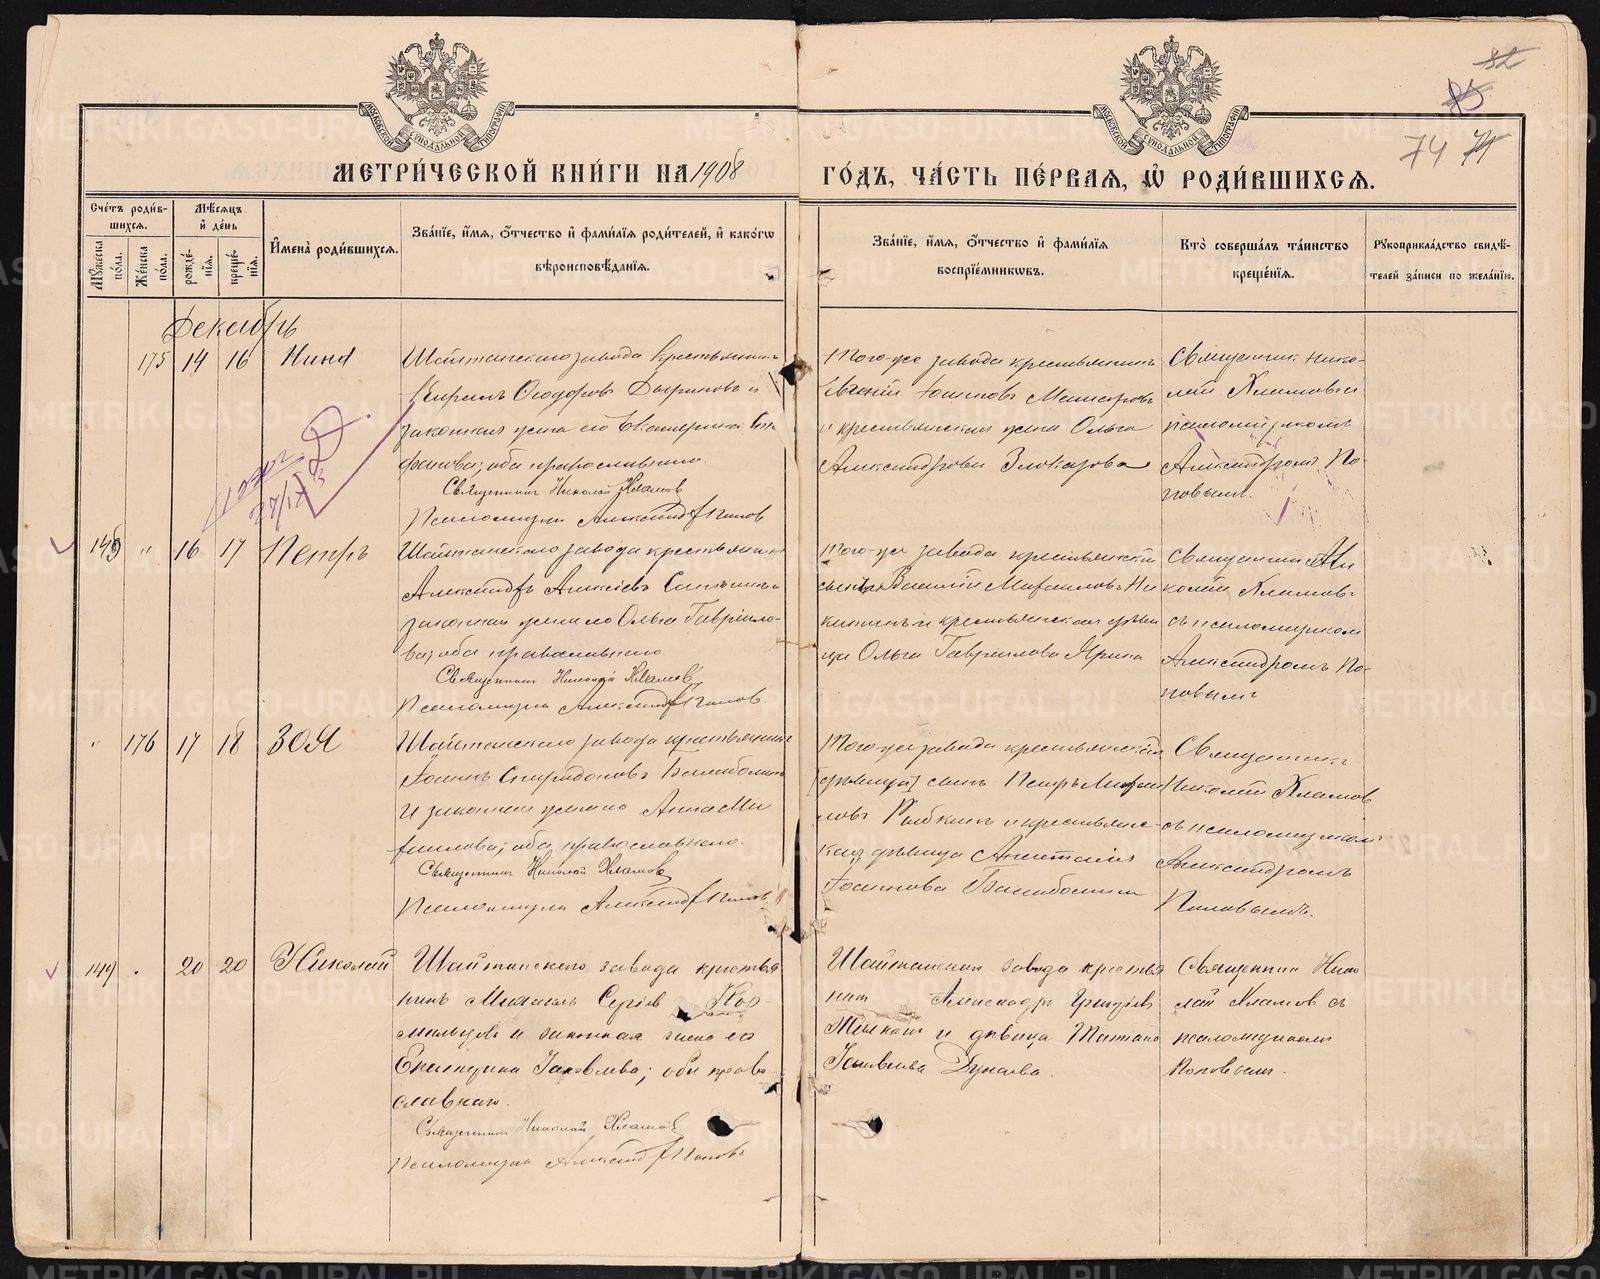 МОСКОВСКОЙ СѴНОДАЛЬНОЙ ТИПОГРАФІИ
МОСКОВСКОЙ СѴНОДАЛЬНОЙ ТИПОГРАФІИ
82
85
74 71
МЕТРИ́ЧЕСКОЙ КНИ́ГИ НА 1908
ГО́ДЪ, ЧА́СТЬ ПЕ́РВАЯ, Ѡ҆ РОДИ́ВШИХСѦ.
Сче́тъ роди́в-
шихсѧ.
Мѣ́сѧцъ
и҆ де́нь
Мꙋ́жеска
по́ла.
Же́нска
по́ла.
рожде́-
нїѧ.
креще́-
нїѧ.
И҆мена̀ роди́вшихсѧ.
Зва́нїе, и҆́мѧ, ѻ҆́тчество и҆ фами́лїѧ роди́телей, и҆ како́гѡ
вѣроисповѣ́данїѧ.
Зва́нїе, и҆́мѧ, ѻ҆́тчество и҆ фами́лїѧ
воспрїе́мникѡвъ.
Кто̀ соверша́лъ та́инство
креще́нїѧ.
Рꙋкоприкла́дство свидѣ́-
телей за́писи по жела́нїю.
Декабрь
175 14 16 Нина
Шайтанскаго завода крестьянинъ
Кириллъ Ѳеодоровъ и
законная жена его Екатерина Сте-
фанова; оба православные.
Священникъ Николай Хламов
Псаломщикъ Александръ Попов
Того-же завода крестьянинъ
Евгеній Іоанновъ
и крестьянская жена Ольга
Александрова Злоказова
Священник Нико-
лай Хламовъ с
псаломщикомъ
Александромъ По-
повымъ.
149 " 16 17 Петръ
Шайтанскаго завода крестьянинъ
Александръ Алексѣевъ и
законная жена его Ольга Гаврило-
ва; оба православные
Священникъ Николай Хламов
Псаломщикъ Александръ Попов.
Того-же завода крестьянскій
сынъ Василій Михаиловъ Ни
китинъ и крестьянская дѣви
ца Ольга Гавриилова Ярина
Священник Ни
колай Хламовъ
съ псаломщиком
Александромъ По-
повымъ
" 176 17 18 Зоя
Шайтанскаго завода крестьянинъ
Іоаннъ Спиридоновъ
и законная жена его Анна Ми
хаилова; оба православные.
Священникъ Николай Хламов
Псаломщикъ Александръ Попов
Того-же завода крестьянскій
[дѣвица] сынъ Петръ Михаи
ловъ Рыбкинъ и крестьянс-
кая дѣвица Анастасія
Іоаннова
Священникъ
Николай Хламов
съ псаломщикомъ
Александромъ
Поповымъ.
149 20 20 Николай
Шайтанскаго завода крестья
нинъ Михаилъ Сергѣевъ Кор-
мильцовъ и законная жена его
Екатерина Іаковлева; оба право-
славные.
Священникъ Николай Хламов
Псаломщикъ Александръ Поповъ
Шайтанскаго завода крестья
нин Александръ Григорьев
и дѣвица Татьяна
Дунаева.
Священник Нико
лай Хламов съ
псаломщикомъ
Поповымъ.
METRIKI.GASO-URAL.RU